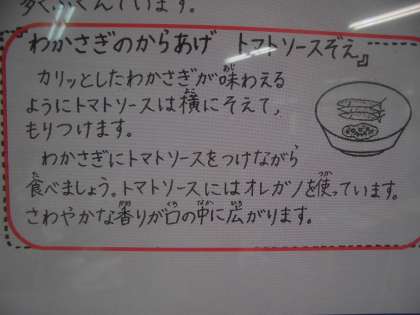 多くふくんでいます。
わかさぎのからあげ　トマトソースぞえ』
カリッとしたわかさぎが味わえる
ようにトマトソースは横にそえて，
もりつけます。
わかさぎにトマトソースをつけながら
食べましょう。トマトソースにはオレガノを使っています。
さわやかな香りが口の中に広がります。